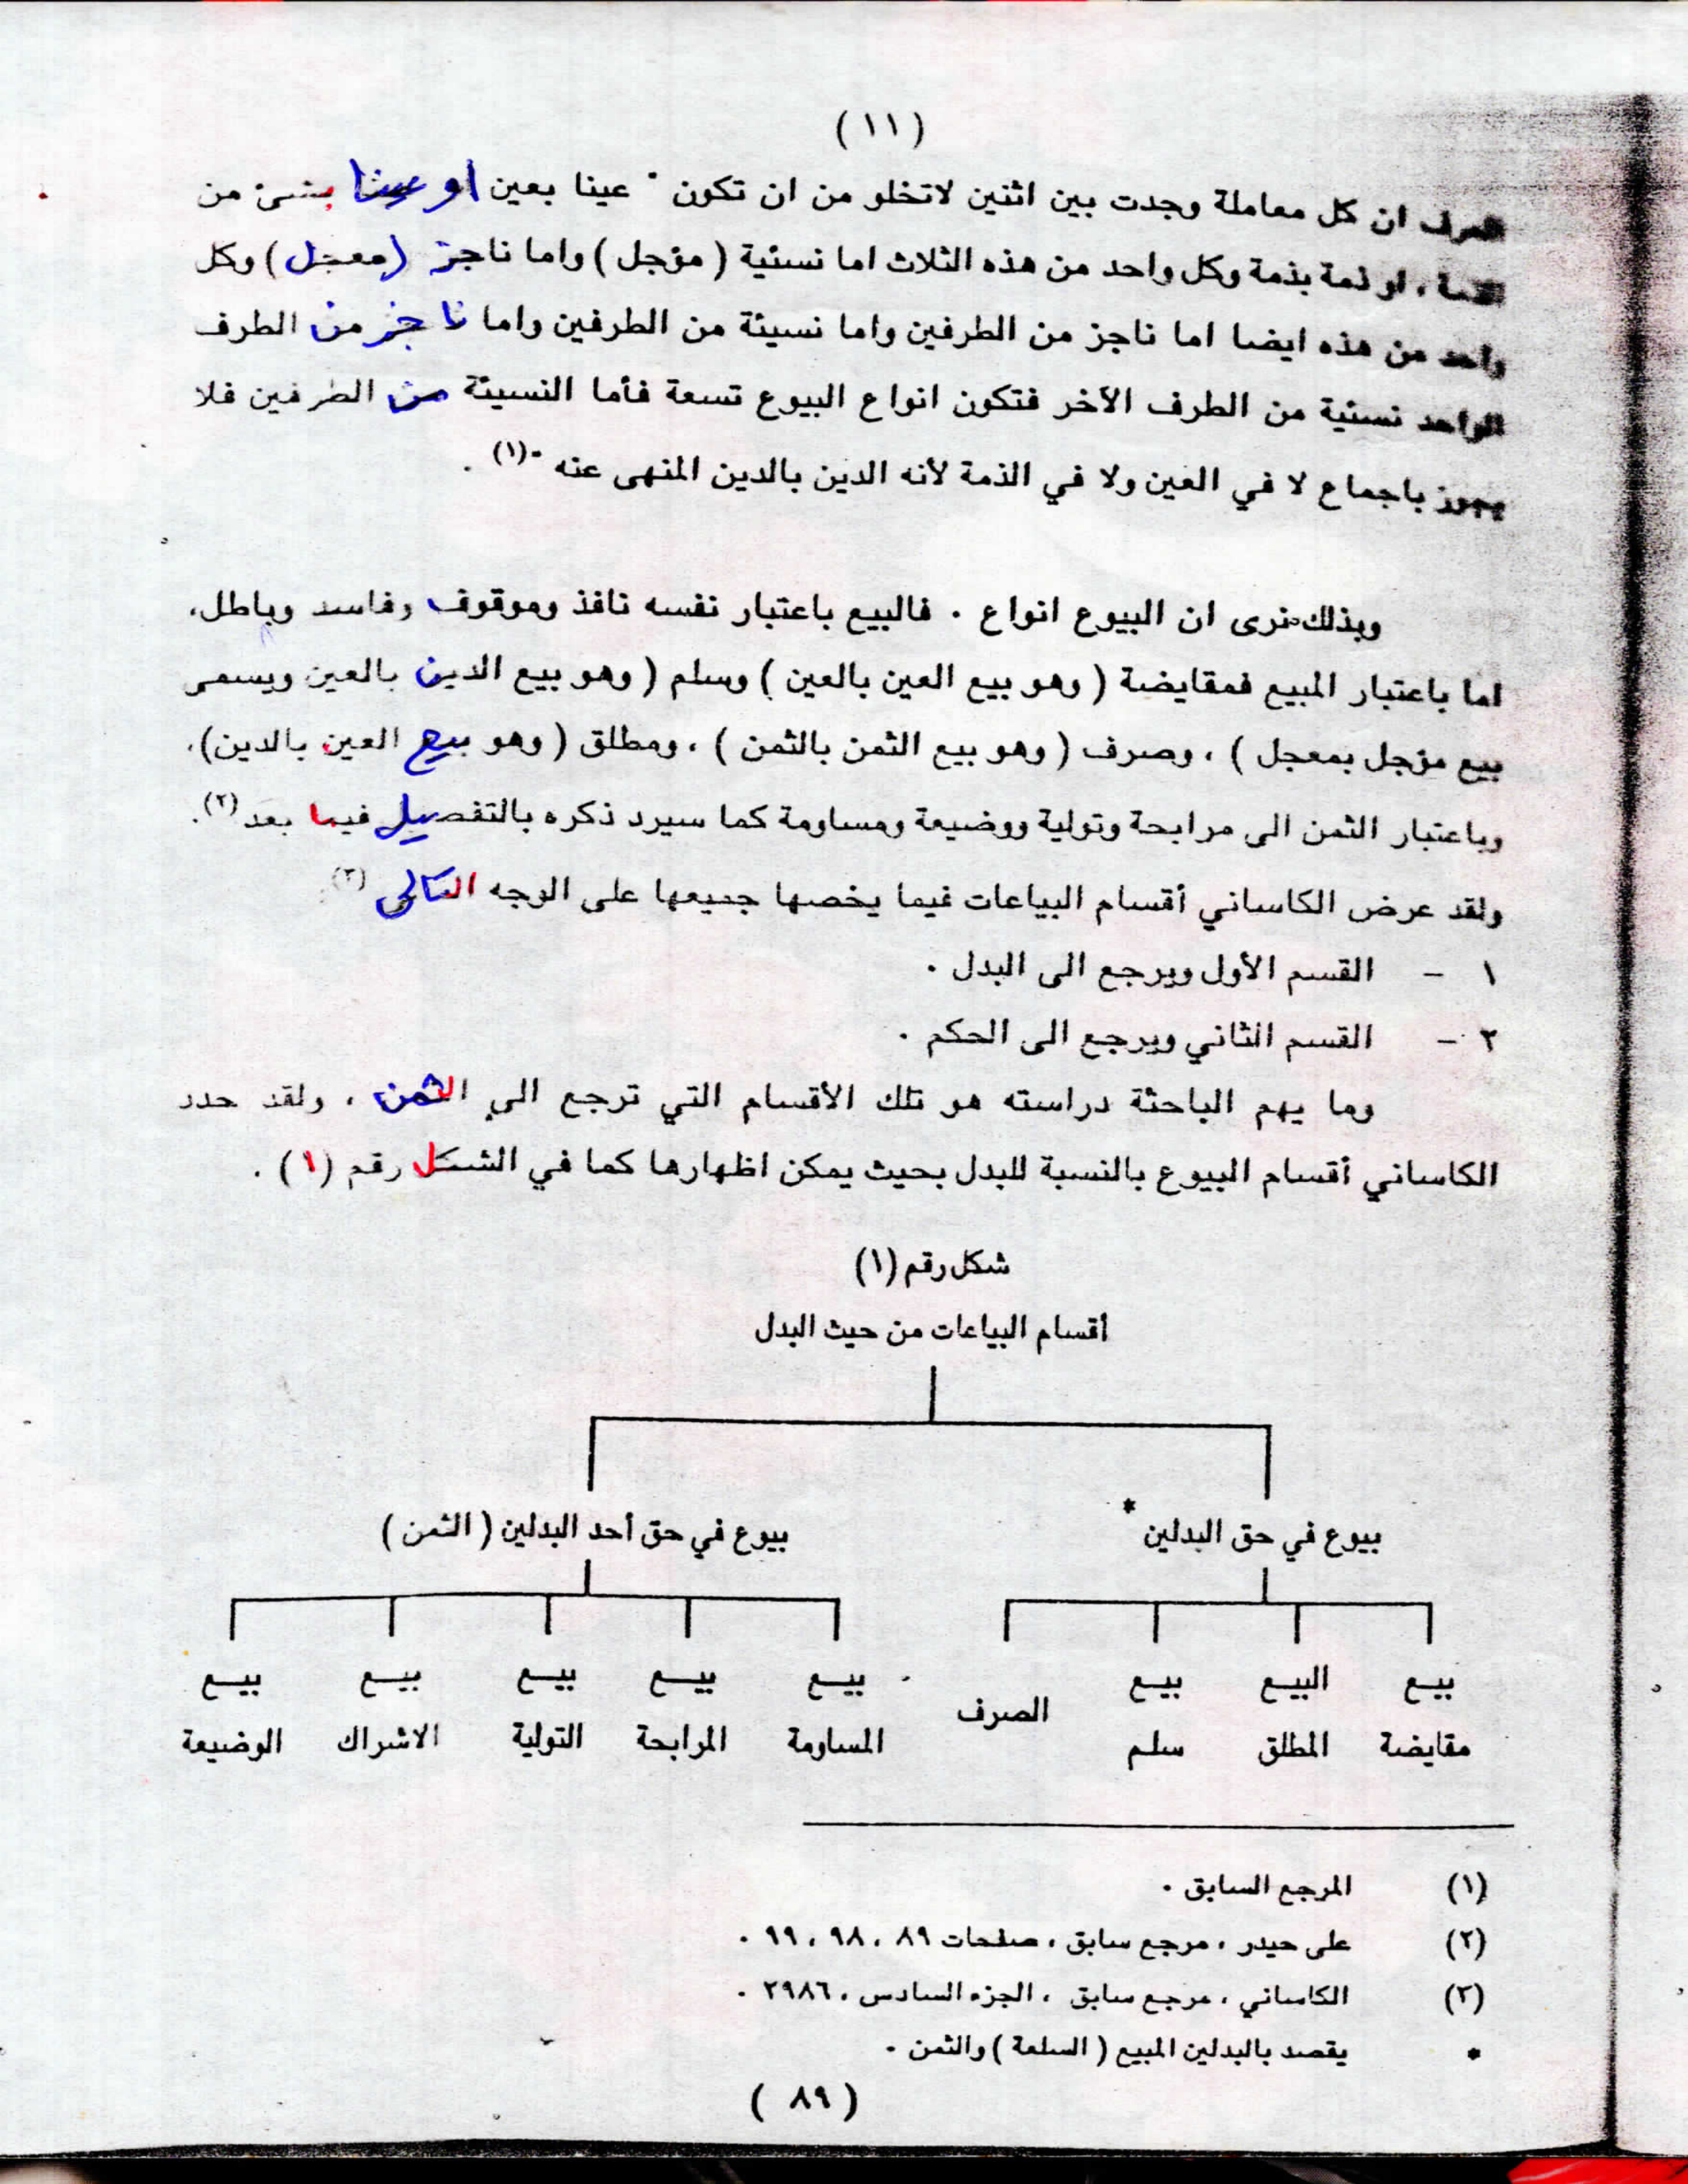 (١١)
الصرف ان كل معاملة وجدت بين اثنين لاتخلو من ان تكون " عينا بعين او عينا بشئ من
الذمة ، او ذمة بذمة وكل واحد من هذه الثلاث اما نسئية ( مؤجل ) واما ناجز (معجل) وكل
واحد من هذه ايضا اما ناجز من الطرفين واما نسيئة من الطرفين واما ناجز من الطرف
الواحد نسئية من الطرف الآخر فتكون انواع البيوع تسعة فأما النسيئة من الطرفين فلا
يجوز باجماع لا في العين ولا في الذمة لأنه الدين بالدين المنهى عنه "(١) .
وبذلك نرى ان البيوع انواع . فالبيع باعتبار نفسه نافذ وموقوف وفاسد وباطل،
اما باعتبار المبيع فمقايضة ( وهو بيع العين بالعين ) وسلم ( وهو بيع الدين بالعين ويسمى
بيع مؤجل بمعجل ) ، وصرف ( وهو بيع الثمن بالثمن ) ، ومطلق ( وهو بيع العين بالدين)،
وباعتبار الثمن الى مرابحة وتولية ووضيعة ومساومة كما سيرد ذكره بالتفصيل فيما بعد (٢).
ولقد عرض الكاساني أقسام البياعات فيما يخصها جميعها على الوجه التالى (٣):
١ - القسم الأول ويرجع الى البدل .
٢ - القسم الثاني ويرجع الى الحكم .
وما يهم الباحثة دراسته هو تلك الأقسام التي ترجع الى الثمن ، ولقد حدد
الكاساني أقسام البيوع بالنسبة للبدل بحيث يمكن اظهارها كما في الشكل رقم (١) .
شكل رقم (١)
أقسام البياعات من حيث البدل
بيوع في حق البدلين * بيوع في حق أحد البدلين ( الثمن )
بيع البيع بيع الصرف بيع بيع بيع بيع بيع
مقايضة المطلق سلم المساومة المرابحة التولية الاشراك الوضيعة
(١) المرجع السابق .
(٢) على حيدر ، مرجع سابق ، صفحات ٨٩ ، ٩٨ ، ٩٩ .
(٣) الكاساني ، مرجع سابق ، الجزء السادس ، ٢٩٨٦ .
* يقصد بالبدلين المبيع ( السلعة ) والثمن .
( ٨٩ )